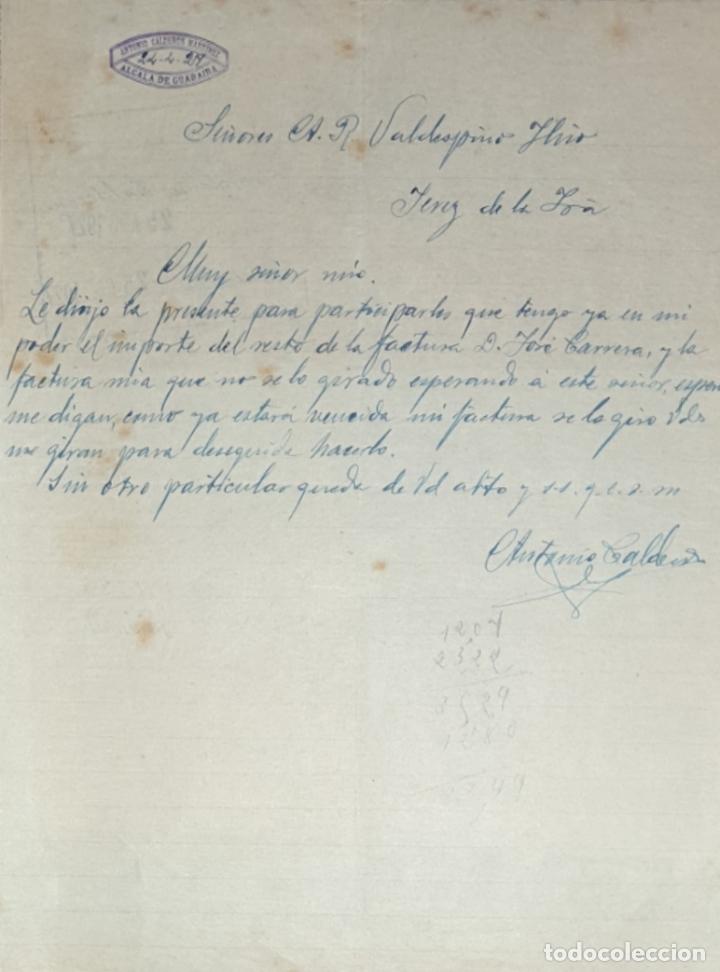 ANTONIO CALDERON MARTINEZ
24-4-27
ALCALA DE GUADAIRA
Señores A. R. Valdespino Hno
Jerez de la Fra
Muy señor mio.
Le dirijo la presente para participarles que tengo ya en mi
poder el importe del resto de la factura D. José Carrera, y la
factura mia que no se lo girado esperando á este señor, espero
me digan, como ya estará vencida mi factura se lo giro Vds
me giran para deseguida hacerlo.
Sin otro particular queda de Vd atto y s.s. q.e.s.m
Antonio Calderon
1207
2322
3529
todocoleccion.net